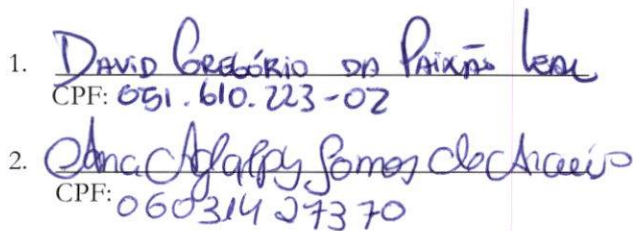 1. DAVID GREGÓRIO DA PAIXÃO LEAL
CPF: 051.610.223-02
2. Ana Gomes de Araújo
CPF: 060314 273 70